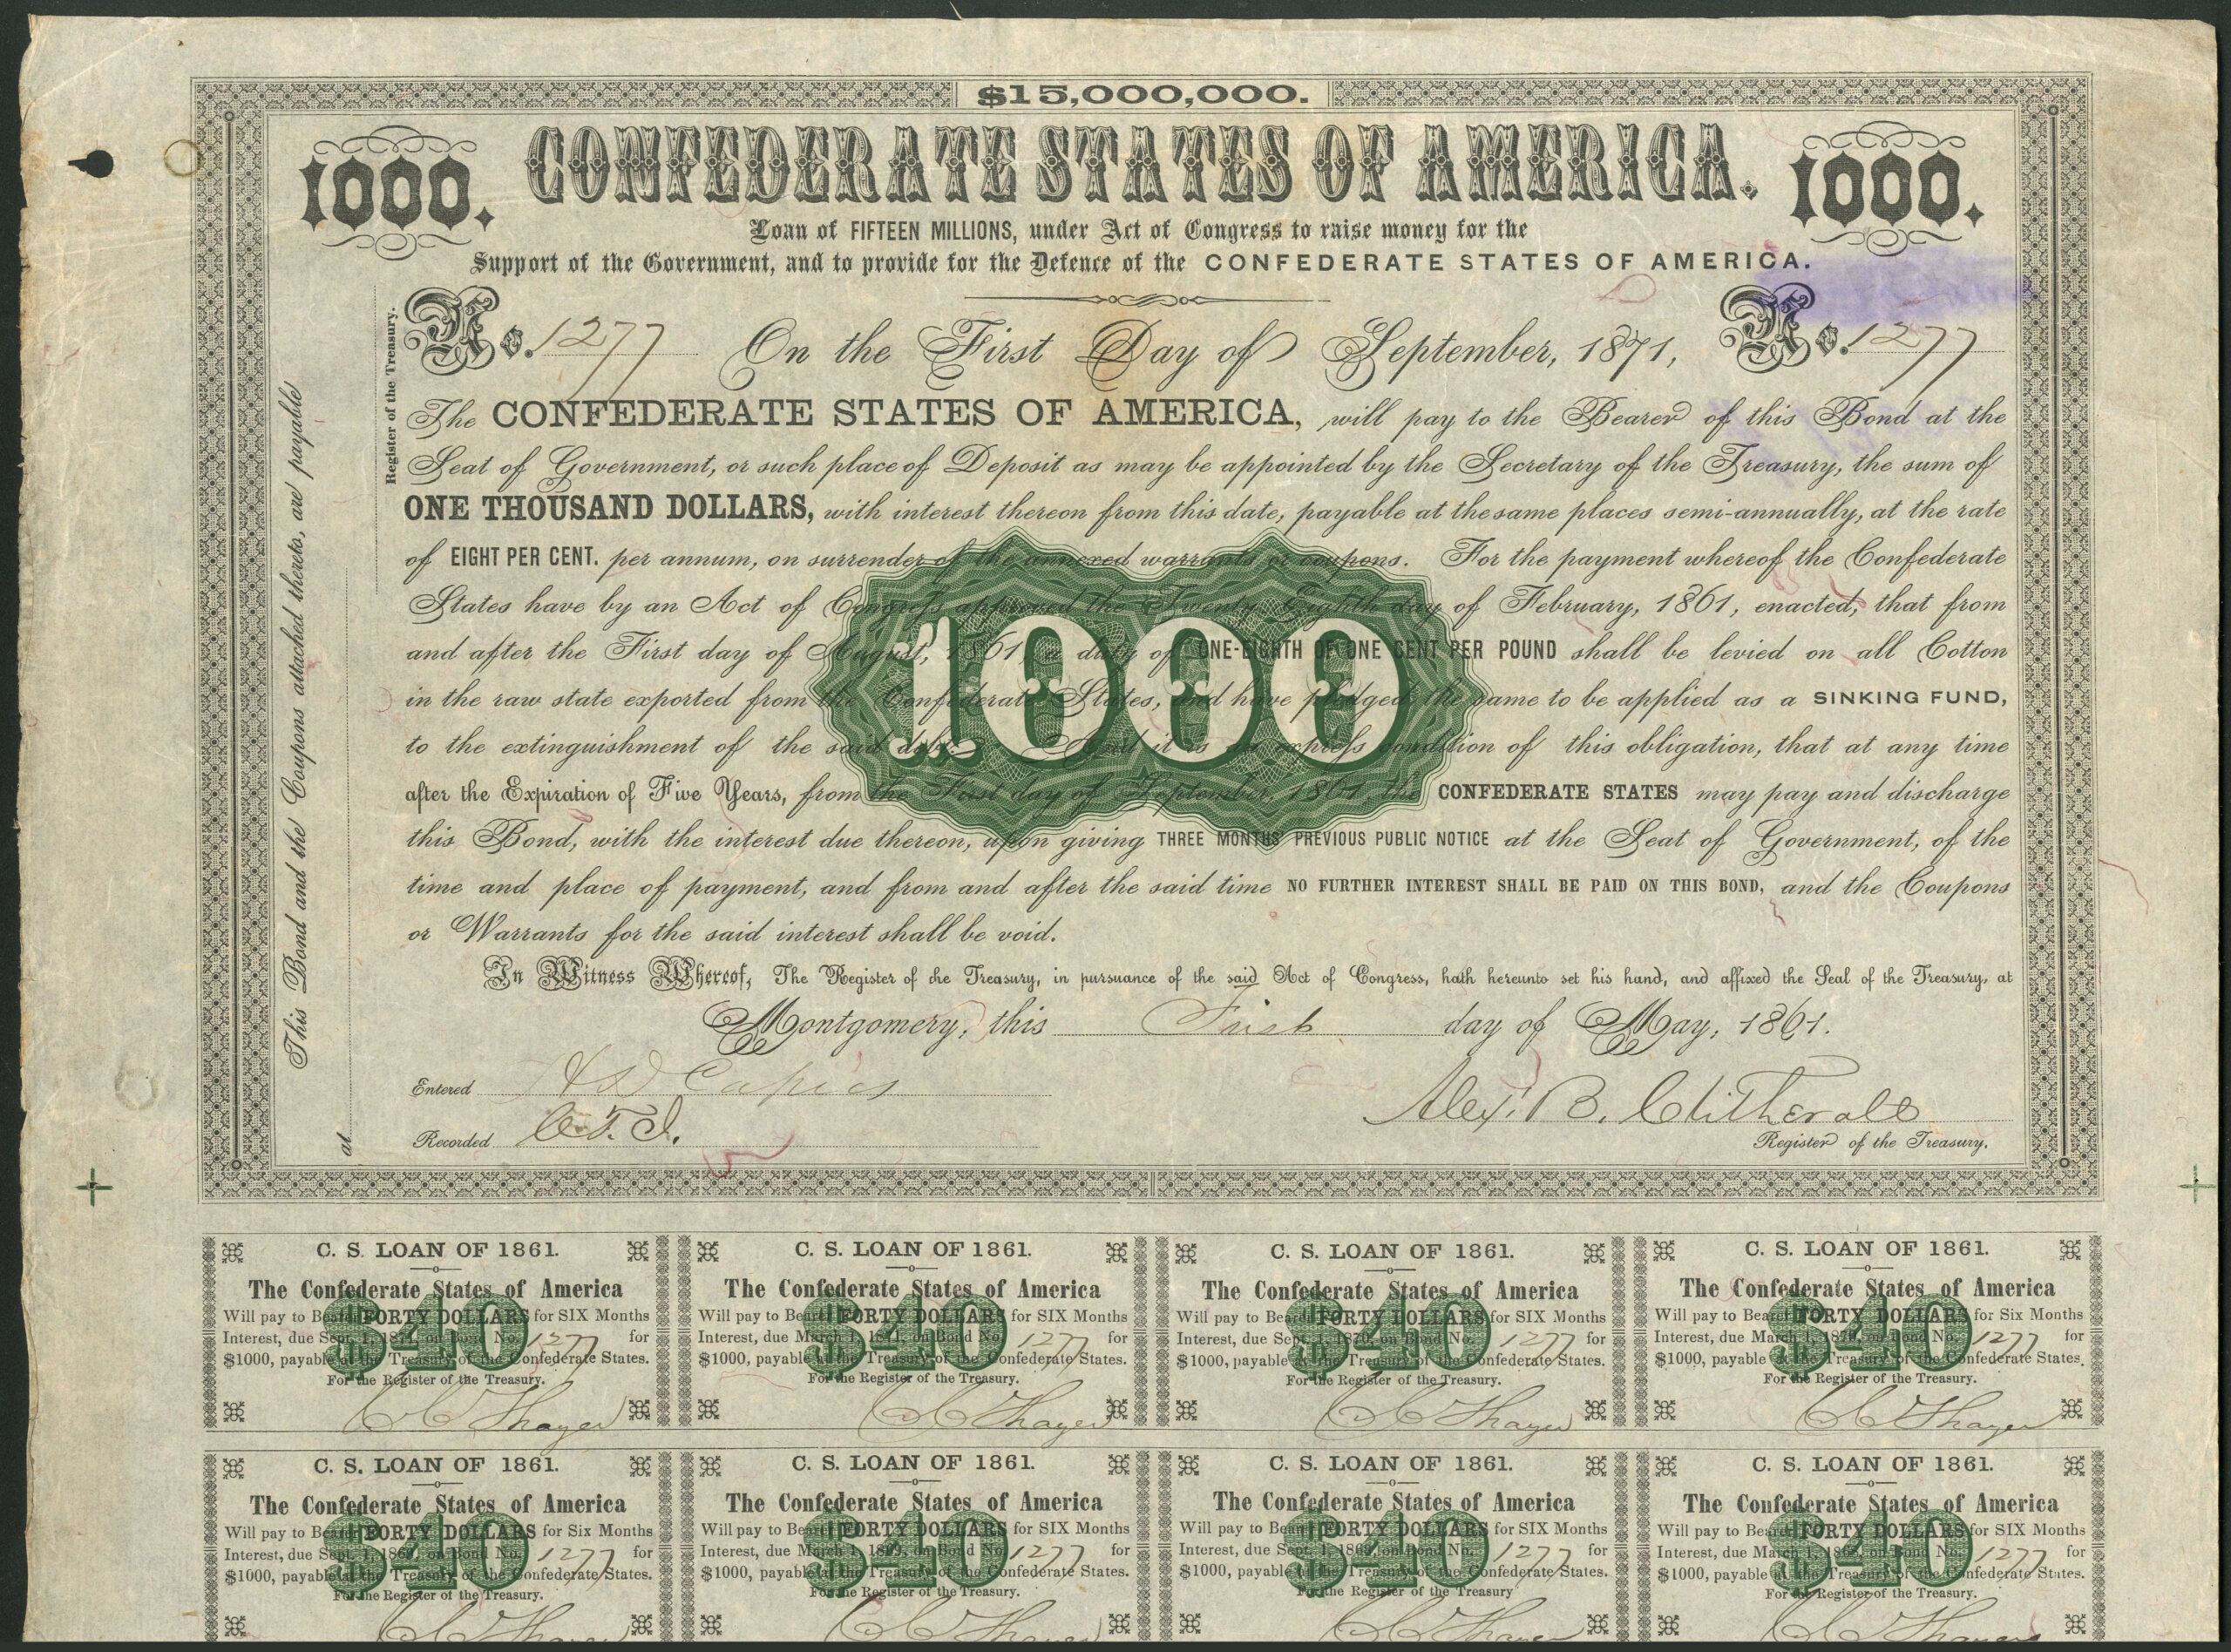 $15,000,000.
1000. CONFEDERATE STATES OF AMERICA. 1000.
Loan of FIFTEEN MILLIONS, under Act of Congress to raise money for the
Support of the Government, and to provide for the Defence of the CONFEDERATE STATES OF AMERICA.
No. 1277 On the First Day of September, 1871, No. 1277
The CONFEDERATE STATES OF AMERICA, will pay to the Bearer of this Bond at the
Seat of Government, or such place of Deposit as may be appointed by the Secretary of the Treasury, the sum of
ONE THOUSAND DOLLARS, with interest thereon from this date, payable at the same places semi-annually, at the rate
of EIGHT PER CENT. per annum, on surrender of the annexed warrants or coupons. For the payment whereof the Confederate
States have by an Act of Congress approved the Twenty Eighth day of February, 1861, enacted, that from
and after the First day of August, 1861, a duty of ONE-EIGHTH OF ONE CENT PER POUND shall be levied on all Cotton
in the raw state exported from the Confederate States, and have pledged the same to be applied as a SINKING FUND,
to the extinguishment of the said debt. And it is an express condition of this obligation, that at any time
after the Expiration of Five Years, from the First day of September, 1861, the CONFEDERATE STATES may pay and discharge
this Bond, with the interest due thereon, upon giving THREE MONTHS' PREVIOUS PUBLIC NOTICE at the Seat of Government, of the
time and place of payment, and from and after the said time NO FURTHER INTEREST SHALL BE PAID ON THIS BOND, and the Coupons
or Warrants for the said interest shall be void.
1000
In Witness Whereof, The Register of the Treasury, in pursuance of the said Act of Congress, hath hereunto set his hand, and affixed the Seal of the Treasury, at
Montgomery, this First day of May, 1861.
Entered H D Capers
Alex. B. Clitherall
Recorded C. T. J.
Register of the Treasury.
This Bond and the Coupons attached thereto, are payable
at
Register of the Treasury.
C. S. LOAN OF 1861.
The Confederate States of America
Will pay to Bearer FORTY DOLLARS for SIX Months
Interest, due Sept. 1, 1871, on Bond No. 1277 for
$1000, payable at the Treasury of the Confederate States.
For the Register of the Treasury.
C C Thayer
$40
C. S. LOAN OF 1861.
The Confederate States of America
Will pay to Bearer FORTY DOLLARS for SIX Months
Interest, due March 1, 1871, on Bond No. 1277 for
$1000, payable at the Treasury of the Confederate States.
For the Register of the Treasury.
C C Thayer
$40
C. S. LOAN OF 1861.
The Confederate States of America
Will pay to Bearer FORTY DOLLARS for SIX Months
Interest, due Sept. 1, 1870, on Bond No. 1277 for
$1000, payable at the Treasury of the Confederate States.
For the Register of the Treasury.
C C Thayer
$40
C. S. LOAN OF 1861.
The Confederate States of America
Will pay to Bearer FORTY DOLLARS for Six Months
Interest, due March 1, 1870, on Bond No. 1277 for
$1000, payable at the Treasury of the Confederate States.
For the Register of the Treasury.
C C Thayer
$40
C. S. LOAN OF 1861.
The Confederate States of America
Will pay to Bearer FORTY DOLLARS for Six Months
Interest, due Sept. 1, 1869, on Bond No. 1277 for
$1000, payable at the Treasury of the Confederate States.
For the Register of the Treasury.
C C Thayer
$40
C. S. LOAN OF 1861.
The Confederate States of America
Will pay to Bearer FORTY DOLLARS for SIX Months
Interest, due March 1, 1869, on Bond No. 1277 for
$1000, payable at the Treasury of the Confederate States.
For the Register of the Treasury.
C C Thayer
$40
C. S. LOAN OF 1861.
The Confederate States of America
Will pay to Bearer FORTY DOLLARS for SIX Months
Interest, due Sept. 1, 1868, on Bond No. 1277 for
$1000, payable at the Treasury of the Confederate States.
For the Register of the Treasury
C C Thayer
$40
C. S. LOAN OF 1861.
The Confederate States of America
Will pay to Bearer FORTY DOLLARS for SIX Months
Interest, due March 1, 1868, on Bond No. 1277 for
$1000, payable at the Treasury of the Confederate States.
For the Register of the Treasury.
C C Thayer
$40